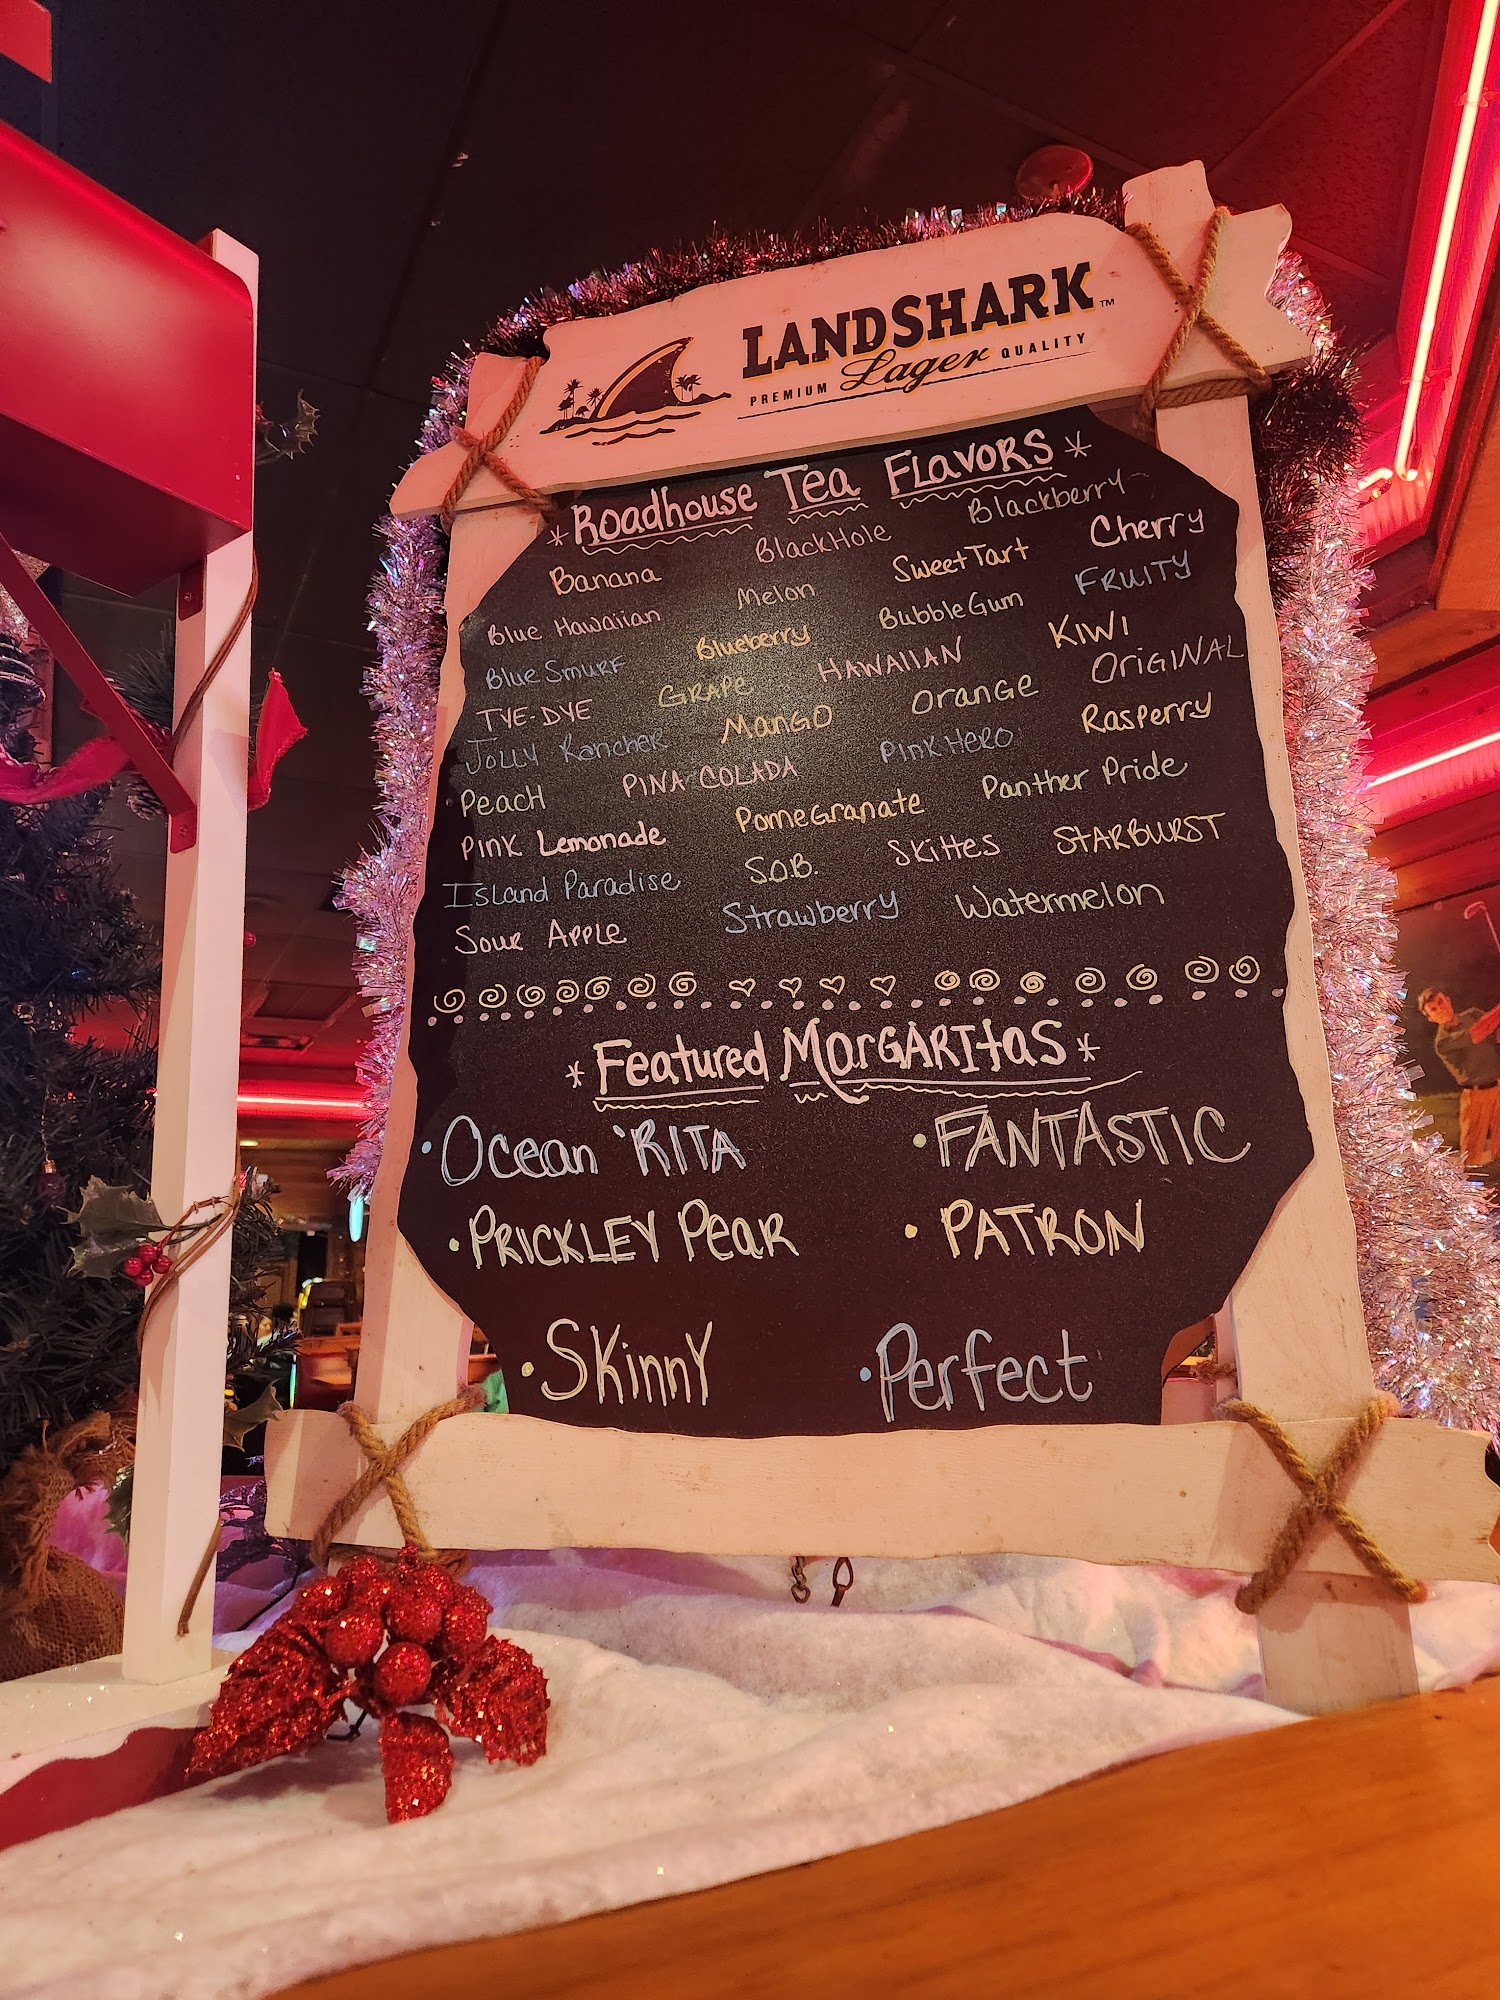 LANDSHARK™
PREMIUM Lager QUALITY
*Roadhouse Tea FLavoRS*
Banana BlackHole Blackberry
Blue Hawaiian Melon SweetTart Cherry
Blue Smurf Blueberry BubbleGum FRUITY
TYE-DYE GRAPE HAWAIIAN KIWI
Jolly Rancher MANGO ORANGE ORIGINAL
PeacH PINA COLADA Pink HERO Rasperry
Pink Lemonade PomeGranate Panther Pride
Island Paradise S.O.B. Skittes STARBURST
Sour Apple Strawberry Watermelon
*Featured MarGARItaS*
•Ocean 'RITA •FANTASTIC
•PRICKLEY PeaR •PATRON
•SKinnY •Perfect